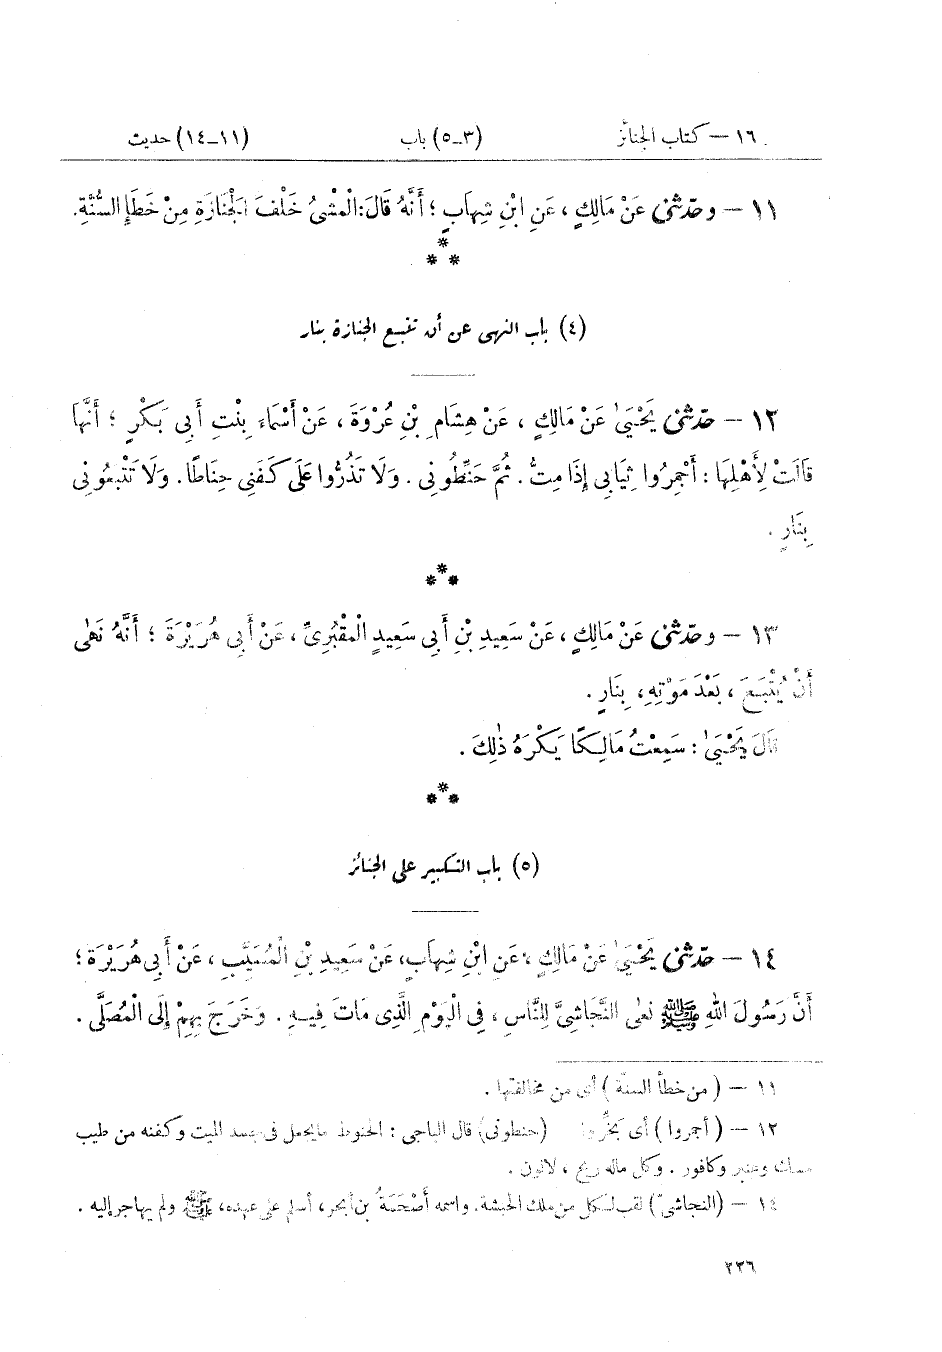 ١٦ — كتاب الجنائز (٣ـ٥) باب (١١ـ١٤) حديث
١١ — وحدّثنى عَنْ مَالِكٍ ، عَنِ ابْنِ شِهَابٍ ؛ أَنَّهُ قَالَ: الْمَشْىُ خَلْفَ الْجَنَازَةِ مِنْ خَطَإِ السُّنَّةِ.
*
* *
(٤) باب النهى عن أن تتبع الجنازة بنار
١٢ — حدّثنى يَحْيَىٰ عَنْ مَالِكٍ ، عَنْ هِشَامِ بْنِ عُرْوَةَ ، عَنْ أَسْمَاءَ بِنْتِ أَبِى بَكْرٍ ؛ أَنَّهَا
قَالَتْ لِأَهْلِهَا : أَجْمِرُوا ثِيَابِى إِذَا مِتُّ . ثُمَّ حَنِّطُونِى . وَلَا تَذُرُّوا عَلَى كَفَنِى حِنَاطًا . وَلَا تَتْبَعُونِى
بِنَارٍ .
*
* *
١٣ — وحدّثنى عَنْ مَالِكٍ ، عَنْ سَعِيدِ بْنِ أَبِى سَعِيدٍ الْمَقْبُرِىِّ ، عَنْ أَبِى هُرَيْرَةَ ؛ أَنَّهُ نَهَى
أَنْ يُتْبَعَ ، بَعْدَ مَوْتِهِ ، بِنَارٍ .
قَالَ يَحْيَىٰ : سَمِعْتُ مَالِكًا يَكْرَهُ ذٰلِكَ .
*
* *
(٥) باب التكبير على الجنائز
١٤ — حدّثنى يَحْيَىٰ عَنْ مَالِكٍ ، عَنِ ابْنِ شِهَابٍ، عَنْ سَعِيدِ بْنِ الْمُسَيَّبِ ، عَنْ أَبِى هُرَيْرَةَ ؛
أَنَّ رَسُولَ اللهِ ﷺ نَعَى النَّجَاشِىَّ لِلنَّاسِ ، فِى الْيَوْمِ الَّذِى مَاتَ فِيهِ . وَخَرَجَ بِهِمْ إِلَى الْمُصَلَّى .
١١ — ( من خطأ السنّة ) أى من مخالفتها .
١٢ — ( أجمروا ) أى بَخِّروا (حنطونى) قال الباجى : الحنوط ما يجعل فى جسد الميت وكفنه من طيب
مسك وعنبر وكافور . وكل ماله ريح ، لا لون .
١٤ — (النجاشىّ) لقب لكل من ملك الحبشة. واسمه أَصْحَمَةُ بن أبحر، أسلم على عهده، ﷺ ولم يهاجر إليه .
٢٢٦